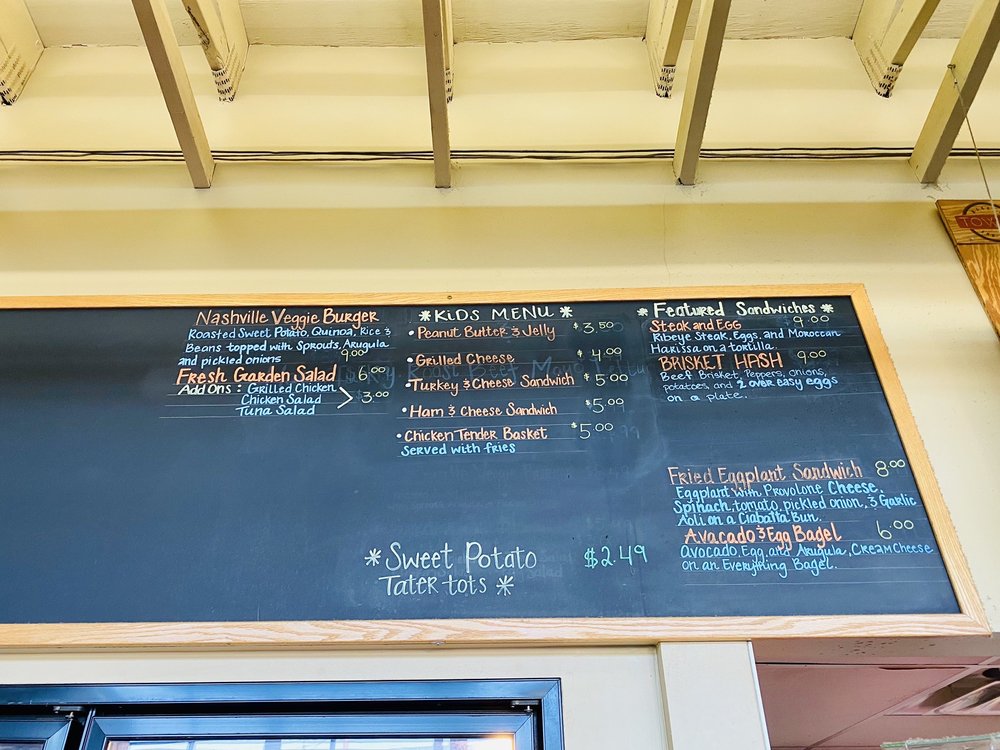 Nashville Veggie Burger
Roasted Sweet Potato, Quinoa, Rice &
Beans topped with Sprouts, Arugula
and pickled onions 9.00
Fresh Garden Salad 6.00
Add Ons: Grilled Chicken
Chicken Salad > 3.00
Tuna Salad
* KiDS MENU *
• Peanut Butter & Jelly $3.50
• Grilled Cheese $4.00
• Turkey & Cheese Sandwich $5.00
• Ham & Cheese Sandwich $5.00
• Chicken Tender Basket $5.00
Served with fries
* Sweet Potato $2.49
Tater tots *
* Featured Sandwiches *
Steak and EGG 9.00
Ribeye Steak, Eggs, and Moroccan
Harissa on a tortilla.
BRISKET HASH 9.00
Beef Brisket, Peppers, onions,
potatoes, and 2 over easy eggs
on a plate.
Fried Eggplant Sandwich 8.00
Eggplant with Provolone Cheese,
Spinach, tomato, pickled onion, & Garlic
Aoli on a Ciabatta Bun.
Avacado & Egg Bagel 6.00
Avocado, Egg, and Arugula, Cream Cheese
on an Everything Bagel.